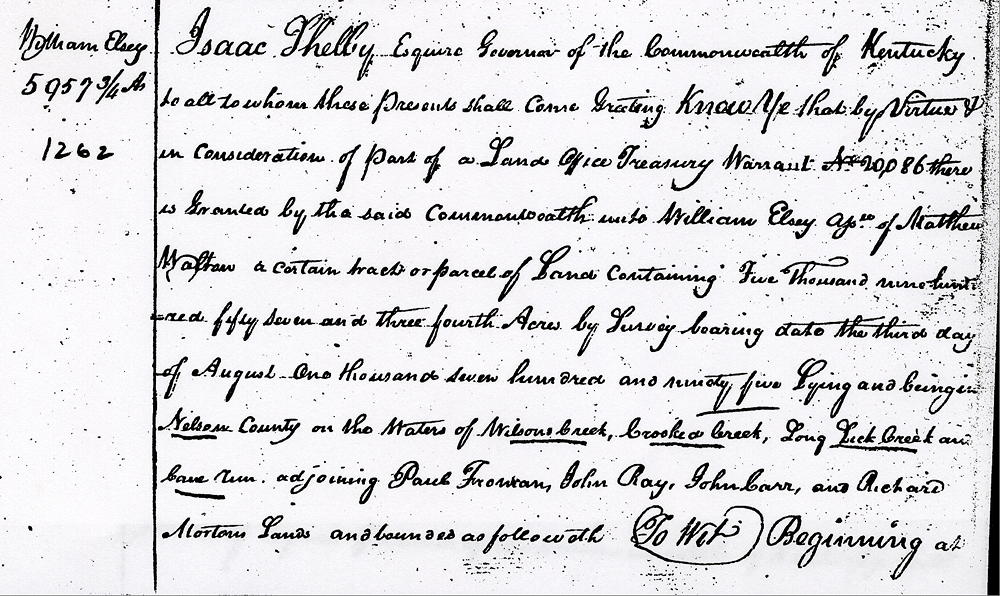 William Elsey
5957 3/4 As
1262
Isaac Shelby Esquire Governor of the Commonwealth of Kentucky
to all to whom these Presents shall Come Greeting Know Ye that by Virtue &
in Consideration of Part of a Land Office Treasury Warrant No 20,086 there
is Granted by the said Commonwealth unto William Elsey of Matthew
Walton a certain tract or parcel of Land Containing Five Thousand nine hund
=red fifty seven and three fourth Acres by Survey bearing date the third day
of August One thousand seven hundred and ninety five Lying and being in
Nelson County on the Waters of Wilsons Creek, Crooked Creek, Long Lick Creek an
Cane run. adjoining Paul Froman, John Ray, John Carr, and Richard
Mortons Lands and bounded as followeth To Wit Beginning at